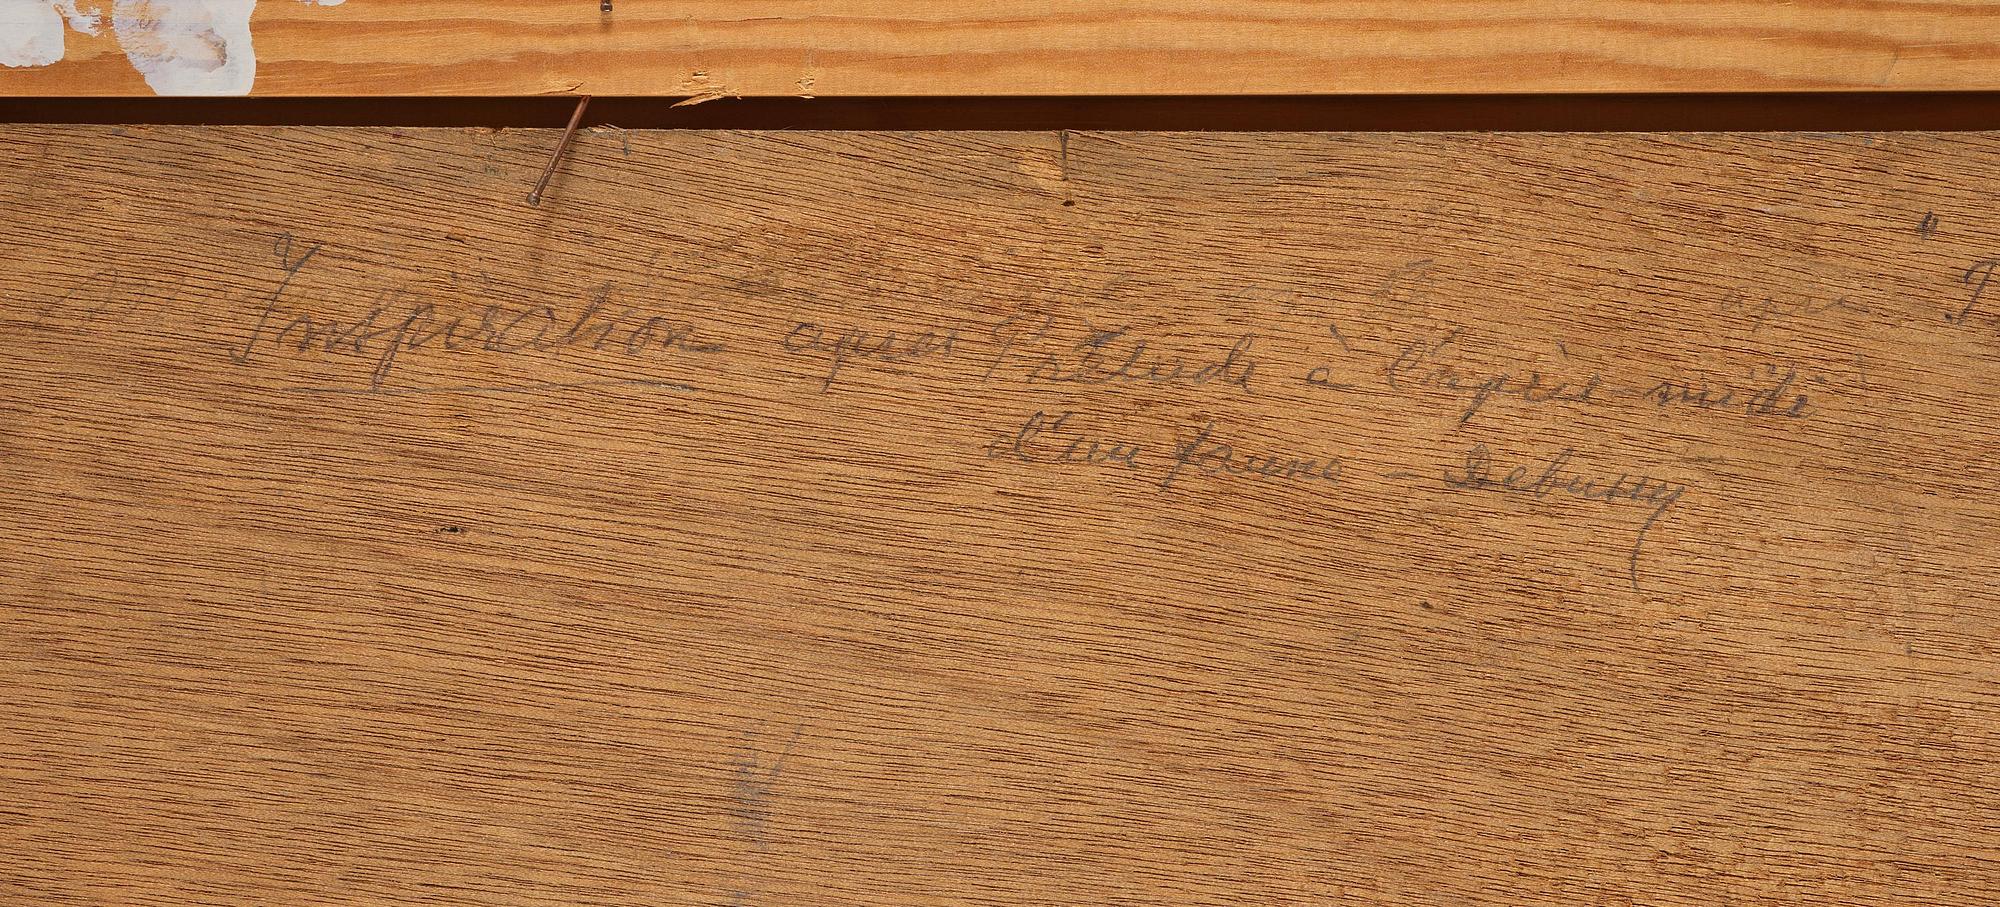 Inspiration après Prélude à l'après-midi
d'un faune – Debussy